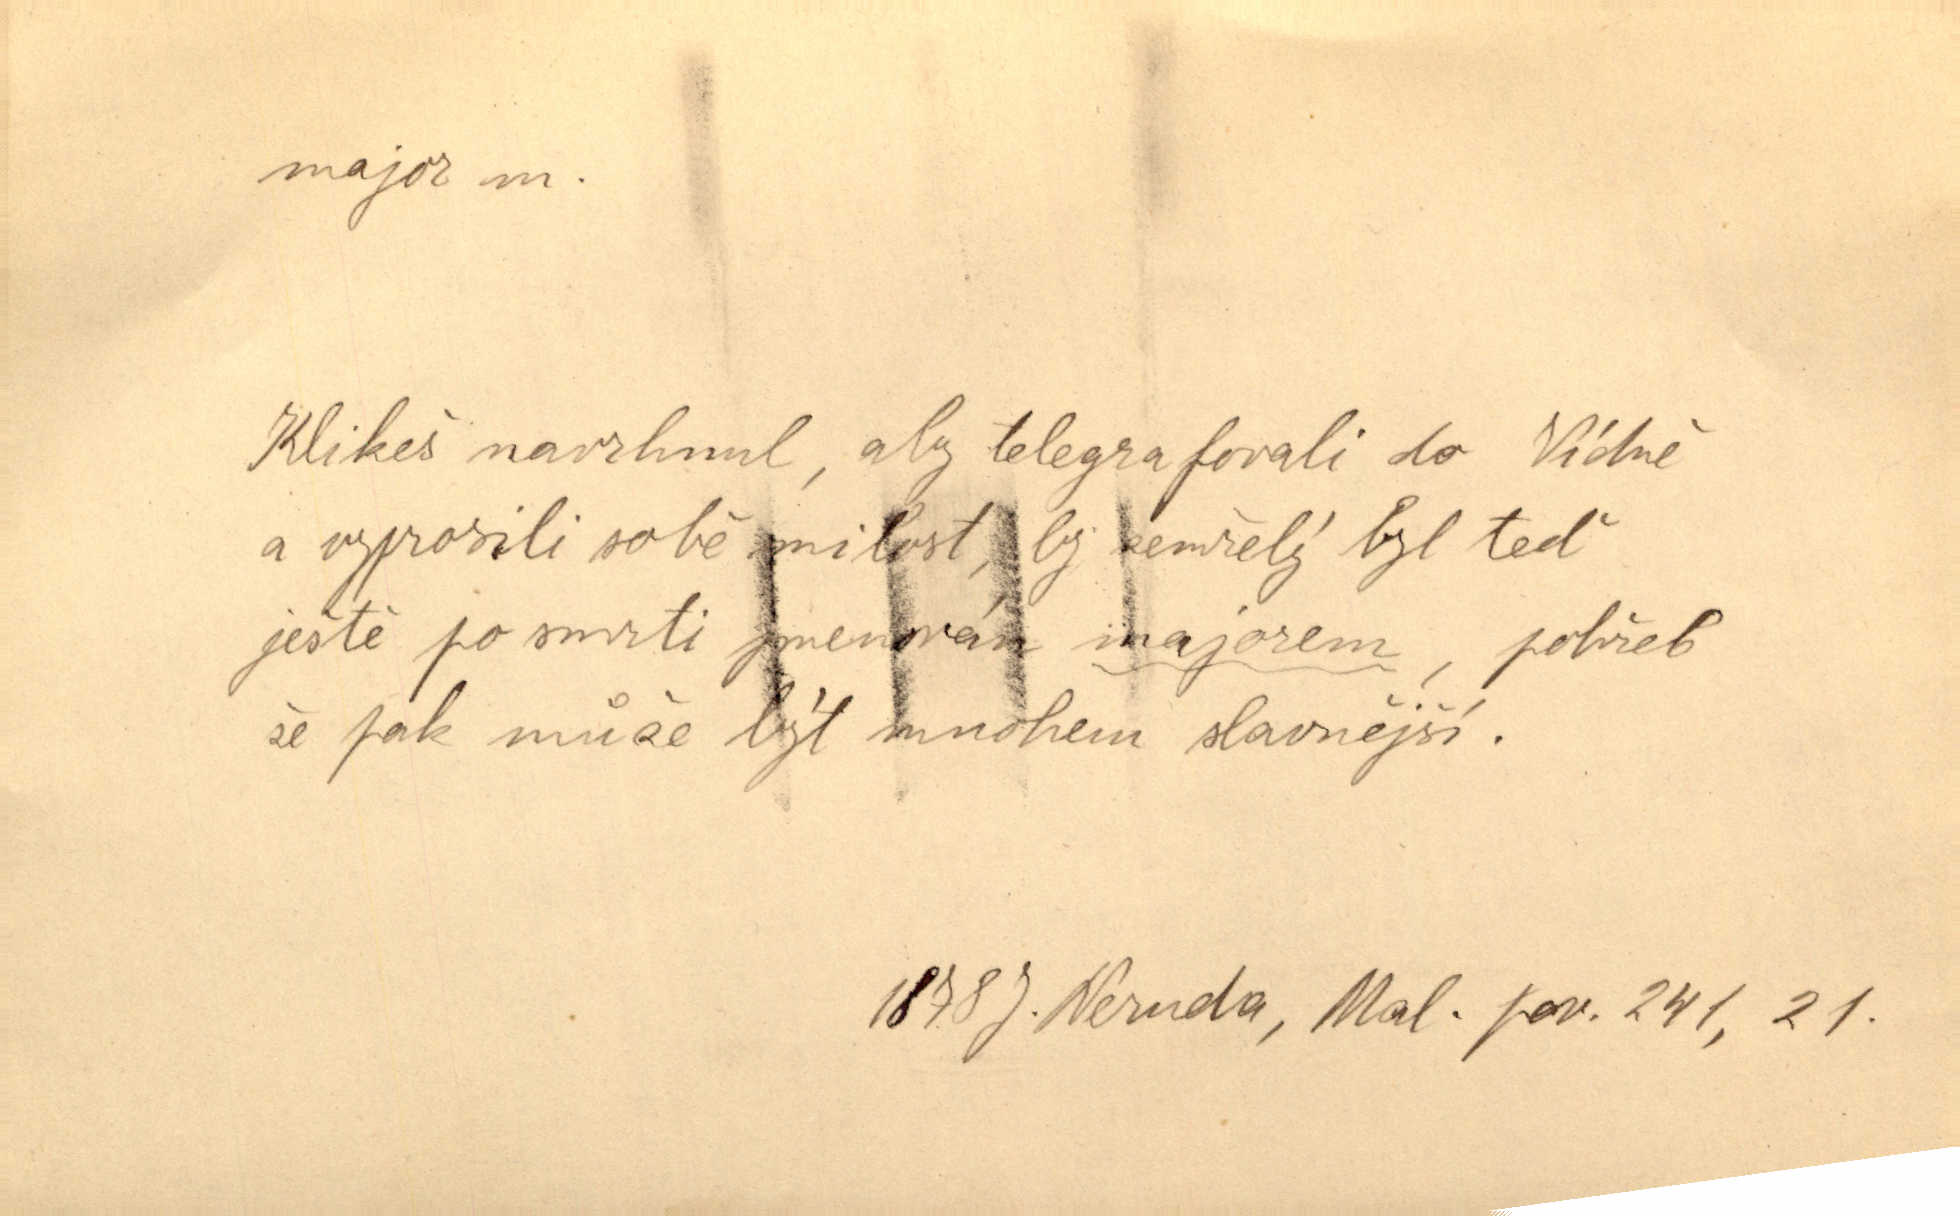 major m.
Klikeš navrhnul, aby telegrafovali do Vídně
a vyprosili sobě milost, by zemřelý byl teď
ještě po smrti jmenován majorem, pohřeb
že pak může být mnohem slavnější.
1878 J. Neruda, Mal. pov. 241, 21.